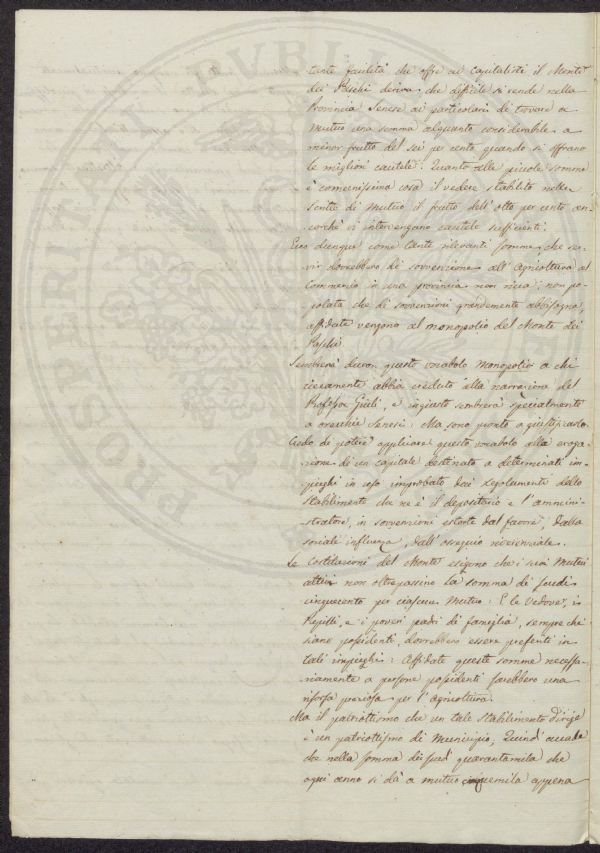 tante facilità che offre ai Capitalisti il Monte
dei Paschi deriva, che difficile si rende nella
Provincia Senese ai particolari di trovare a
Mutuo una somma alquanto considerabile a
minor frutto del sei per cento quando si offrano
le migliori cautele: Quanto alle piccole somme
è comunissima cosa il vedere stabilito nelle
Scritte di Mutuo il frutto dell'otto per cento an-
corchè vi intervengano cautele sufficienti.
Ecco dunque come tante rilevanti somme, che ser-
vir dovrebbero di sovvenzione all'Agricoltura al
Commercio in una provincia non ricca, non po-
polata che di sovvenzioni grandemente abbisogna,
affidate vengono al monopolio del Monte dei
Paschi
Sembrerà duron questo vocabolo Monopolio a chi
ciecamente abbia creduto alla narrazione del
Professor Giuli, e ingiusto sembrerà specialmente
a orecchie Senesi: Ma sono pronto a giustificarlo.
Credo di potere applicare questo vocabolo alla eroga-
zione di un capitale destinato a determinati im-
pieghi in uso improbato dai regolamenti dello
Stabilimento che ne è il depositario e l'ammini-
stratore, in sovvenzioni estorte dal favore, dalla
sociale influenza, dall'ossequio
Le Costituzioni del Monte esigono che i suoi Mutui
attivi non oltrepassino la somma di scudi
cinquecento per ciascun Mutuo: E le Vedove, i
Pupilli, e i poveri padri di famiglia, sempre che
siano possidenti, dovrebbero essere preferiti in
tali impieghi: Affidate queste somme necessa-
riamente a persone possidenti sarebbero una
risorsa preziosa per l'agricoltura.
Ma il patriottismo che un tale Stabilimento dirige
è un patriottismo di Municipio, Quindi accade
che nella somma dei scudi quarantamila che
ogni anno si dà a mutuo cinquemila appena
PVBLI